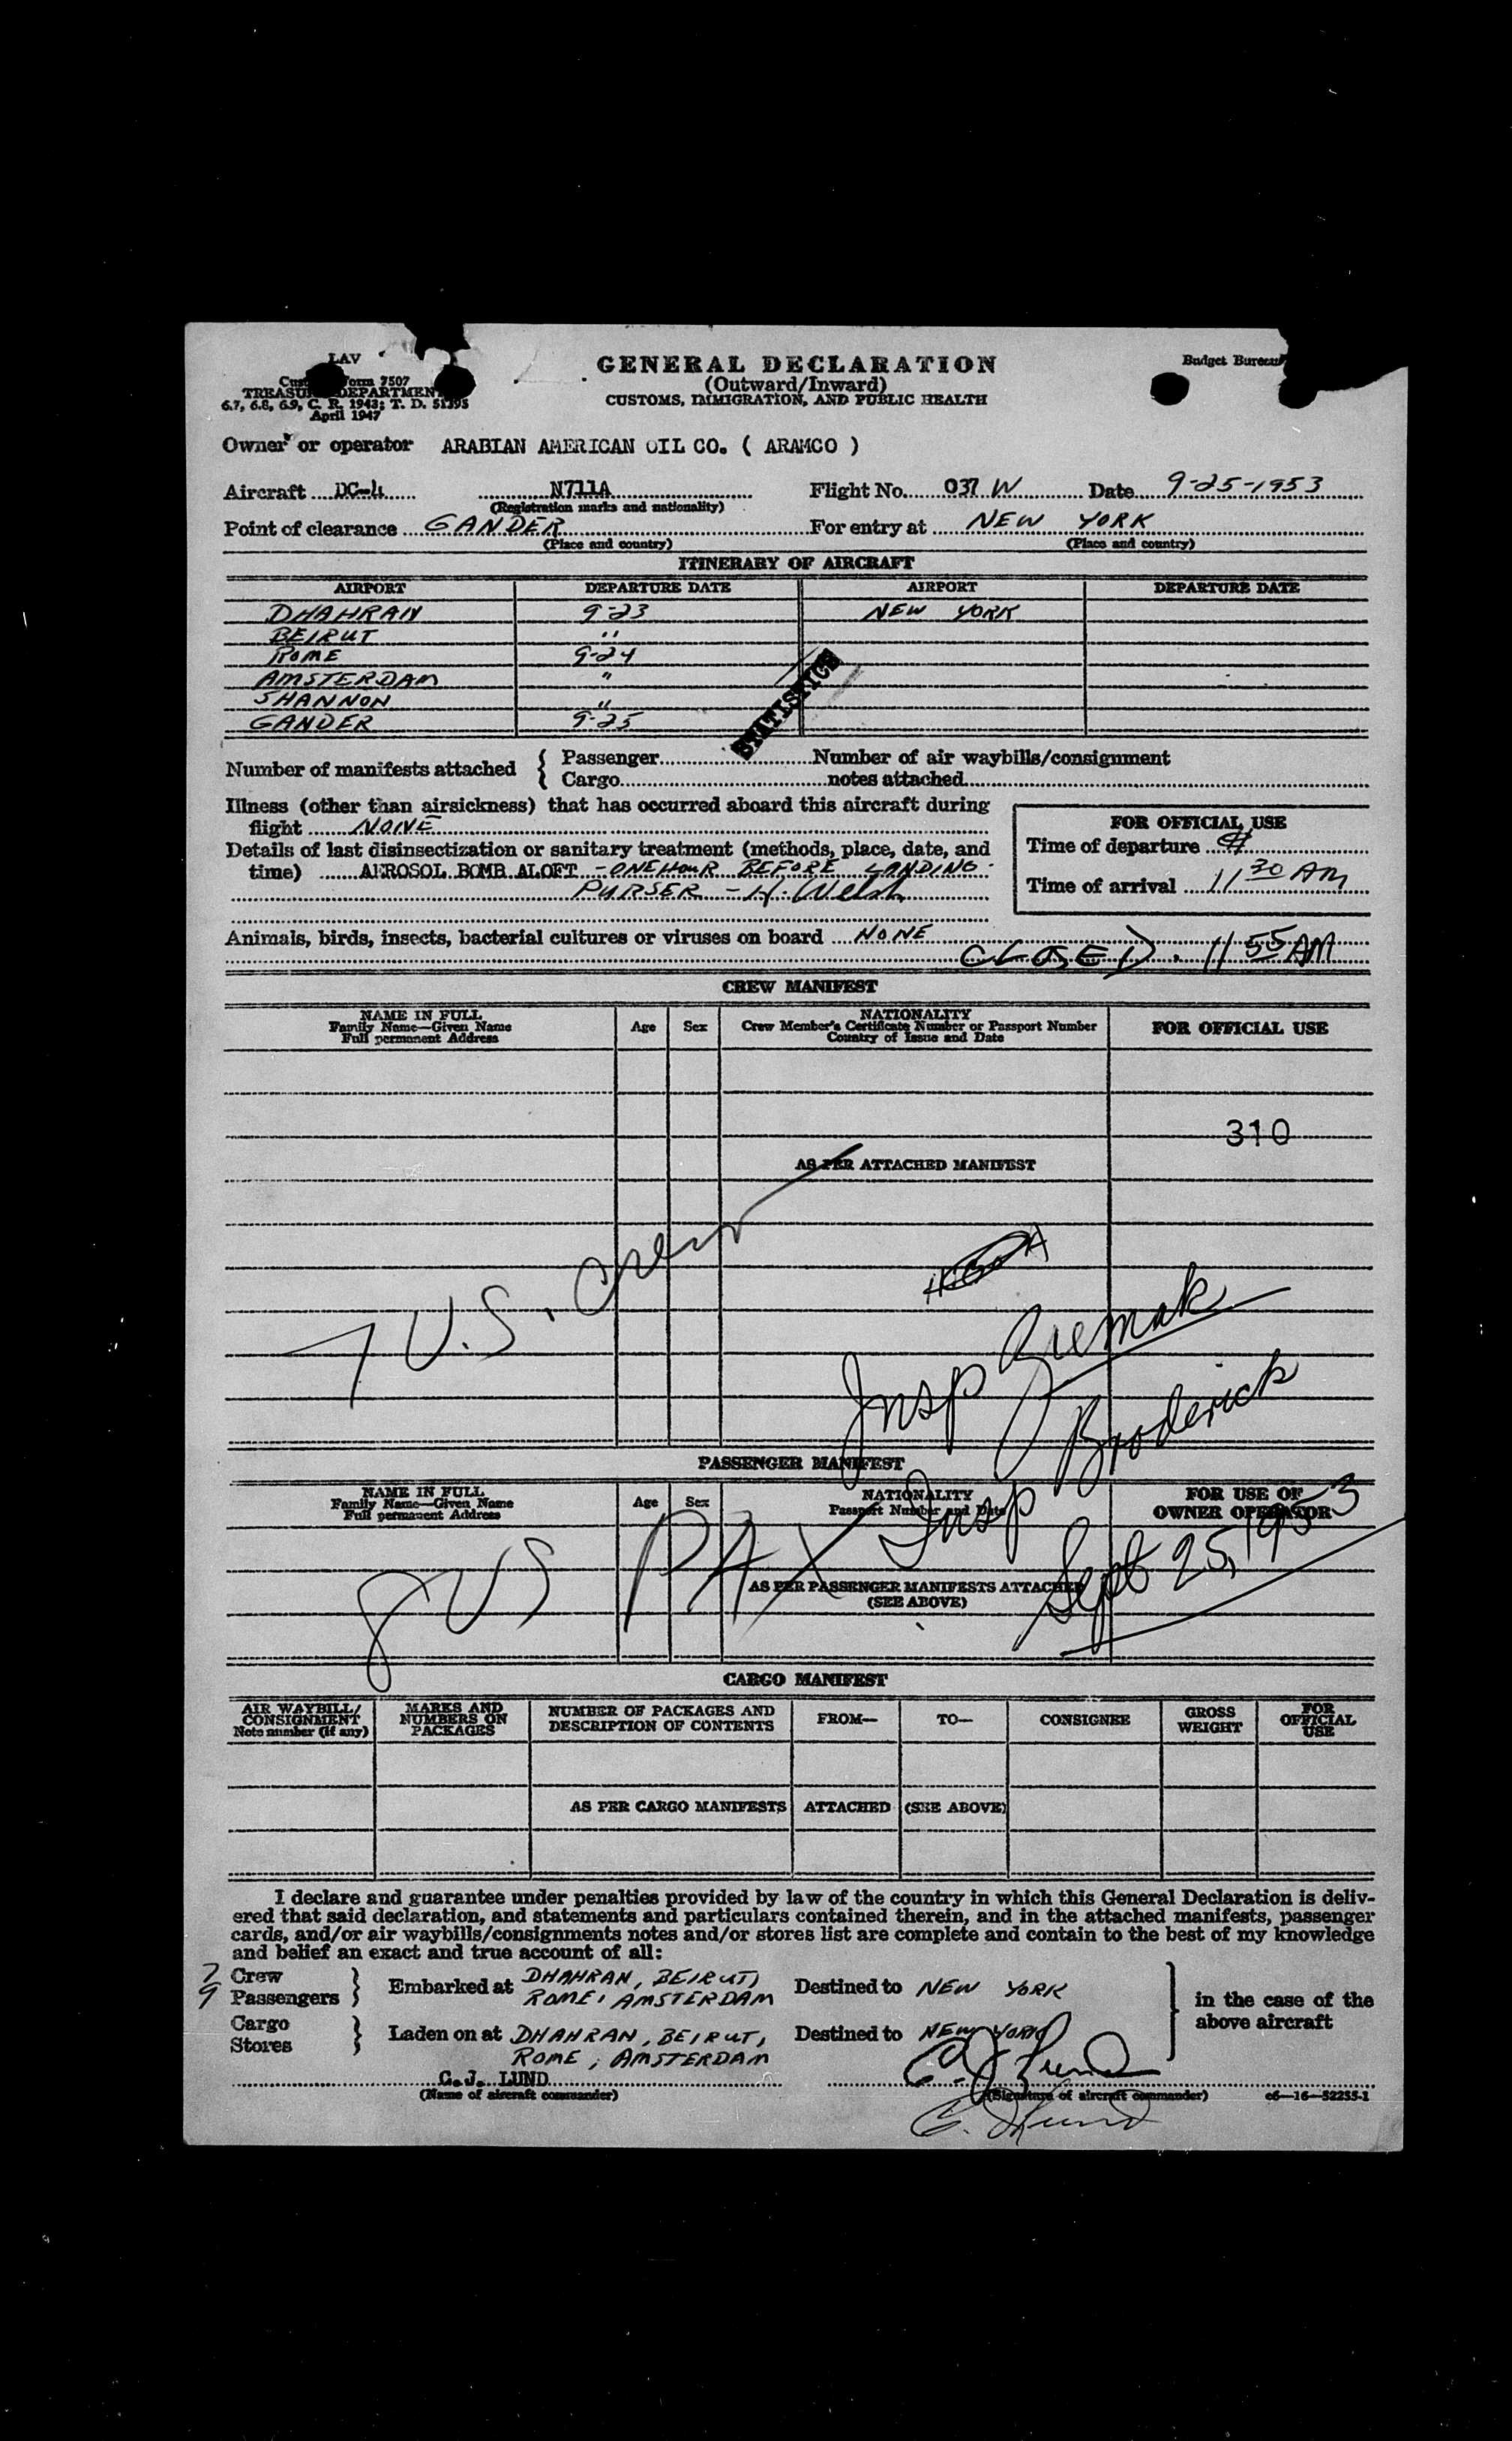 LAV
Form 7507
TREASURY DEPARTMENT
6.7, 6.8, 6.9, C. R. 1943; T. D. 51395
April 1947
GENERAL DECLARATION
(Outward/Inward)
CUSTOMS, IMMIGRATION, AND PUBLIC HEALTH
Budget Bureau
Owner or operator ARABIAN AMERICAN OIL CO. ( ARAMCO )
Aircraft DC-4 N711A Flight No. 037 W Date 9-25-1953
(Registration marks and nationality)
Point of clearance GANDER For entry at NEW YORK
(Place and country) (Place and country)
ITINERARY OF AIRCRAFT
AIRPORT DEPARTURE DATE AIRPORT DEPARTURE DATE
DHAHRAN 9-23 NEW YORK
BEIRUT "
ROME 9-24
AMSTERDAM "
SHANNON "
GANDER 9-25
STATISTICS
Number of manifests attached { Passenger Number of air waybills/consignment
{ Cargo notes attached
Illness (other than airsickness) that has occurred aboard this aircraft during
flight NONE
Details of last disinsectization or sanitary treatment (methods, place, date, and
time) AEROSOL BOMB ALOFT - ONE HOUR BEFORE LANDING
PURSER - H. Welsh
FOR OFFICIAL USE
Time of departure
Time of arrival 11 30 AM
Animals, birds, insects, bacterial cultures or viruses on board NONE
CLOSED. 11 55 AM
CREW MANIFEST
NAME IN FULL
Family Name—Given Name
Full permanent Address
Age Sex
NATIONALITY
Crew Member's Certificate Number or Passport Number
Country of Issue and Date
FOR OFFICIAL USE
310
AS PER ATTACHED MANIFEST
7 U.S. Crew
Insp
Insp Broderick
Sept 25, 1953
PASSENGER MANIFEST
NAME IN FULL
Family Name—Given Name
Full permanent Address
Age Sex
NATIONALITY
Passport Number and Date
FOR USE OF
OWNER OPERATOR
8 US PAX
AS PER PASSENGER MANIFESTS ATTACHED
(SEE ABOVE)
CARGO MANIFEST
AIR WAYBILL/
CONSIGNMENT
Note number (if any)
MARKS AND
NUMBERS ON
PACKAGES
NUMBER OF PACKAGES AND
DESCRIPTION OF CONTENTS
FROM—
TO—
CONSIGNEE
GROSS
WEIGHT
FOR
OFFICIAL
USE
AS PER CARGO MANIFESTS ATTACHED (SEE ABOVE)
I declare and guarantee under penalties provided by law of the country in which this General Declaration is deliv-
ered that said declaration, and statements and particulars contained therein, and in the attached manifests, passenger
cards, and/or air waybills/consignments notes and/or stores list are complete and contain to the best of my knowledge
and belief an exact and true account of all:
7 Crew
9 Passengers } Embarked at DHAHRAN, BEIRUT, ROME, AMSTERDAM Destined to NEW YORK
in the case of the
above aircraft
Cargo
Stores } Laden on at DHAHRAN, BEIRUT, ROME, AMSTERDAM Destined to NEW YORK
C.J. LUND C J Lund
(Name of aircraft commander) (Signature of aircraft commander) c6—16—52255-1
C. J Lund